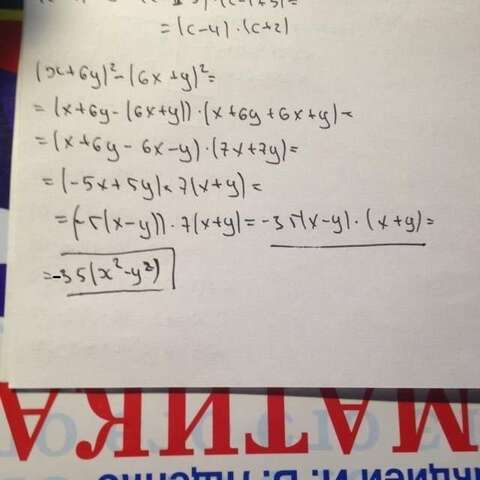 = (c-4)·(c+2)
(x+6y)²-(6x+y)²=
= (x+6y-(6x+y))·(x+6y+6x+y)=
= (x+6y-6x-y)·(7x+7y)=
= (-5x+5y)·7(x+y)=
= (-5(x-y))·7(x+y)= -35(x-y)·(x+y)=
= -35(x²-y²)
МАТИКА